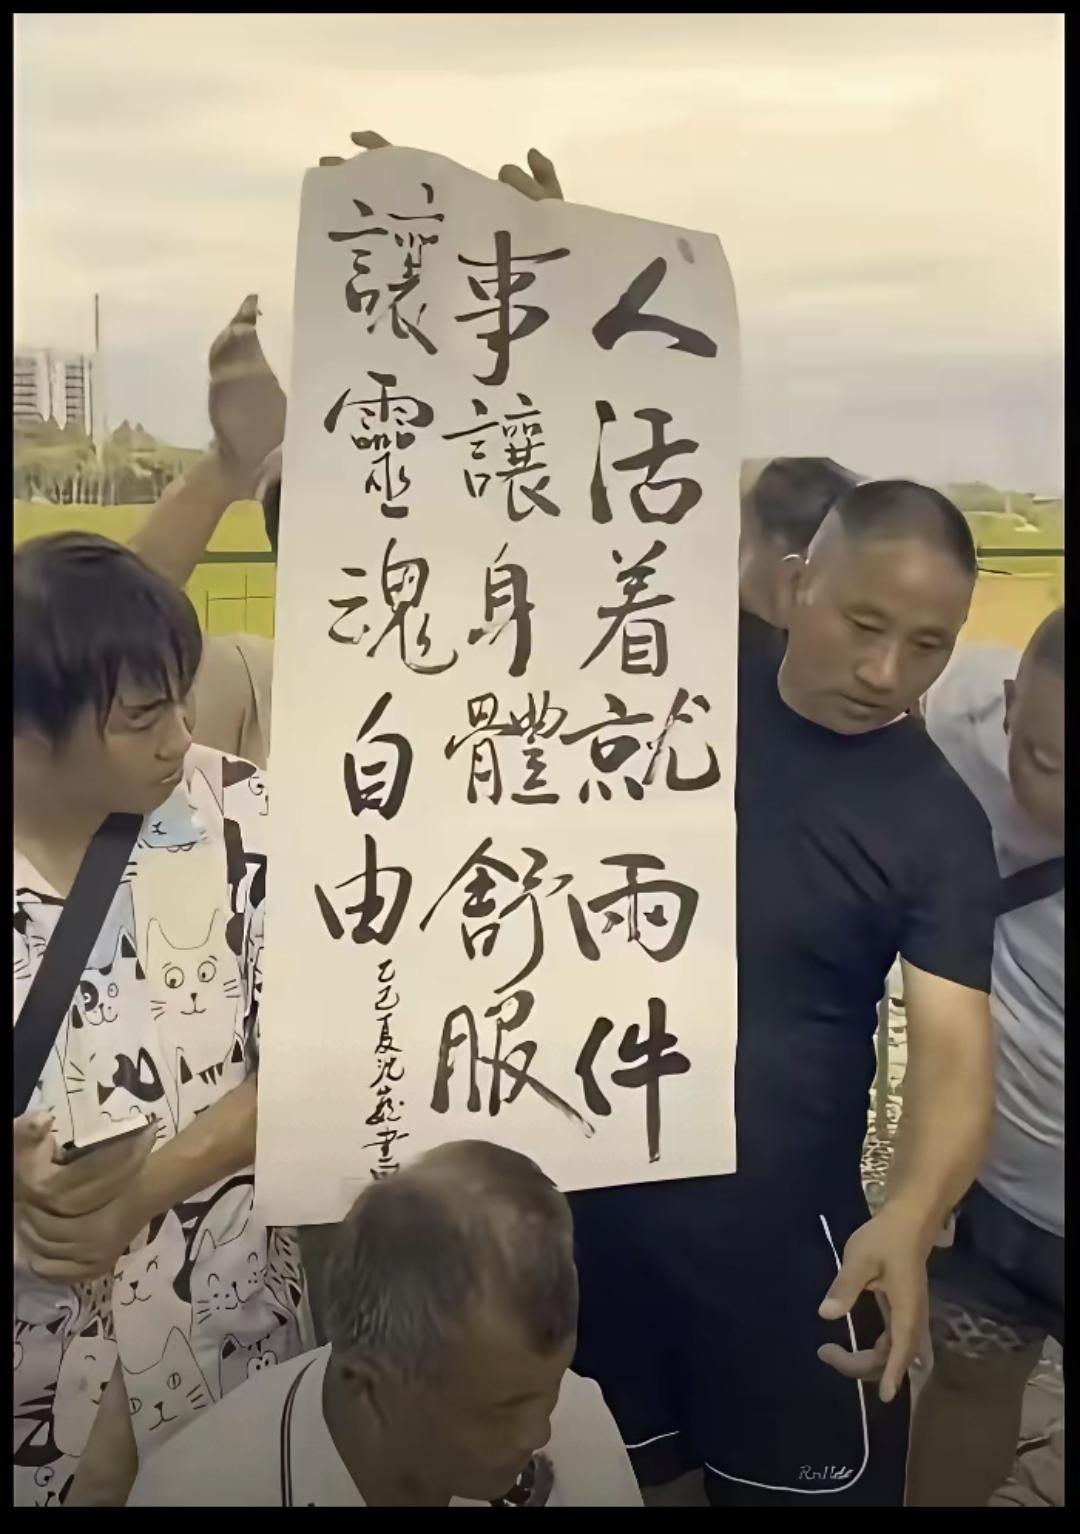 人活着就兩件
事讓身體舒服
讓靈魂自由
乙巳夏沈巍書